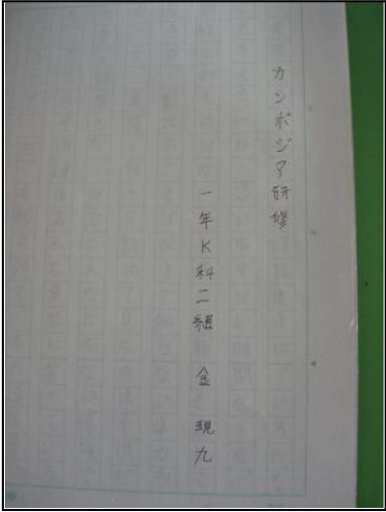 カンボジア研修
一年K科二組 金 現九